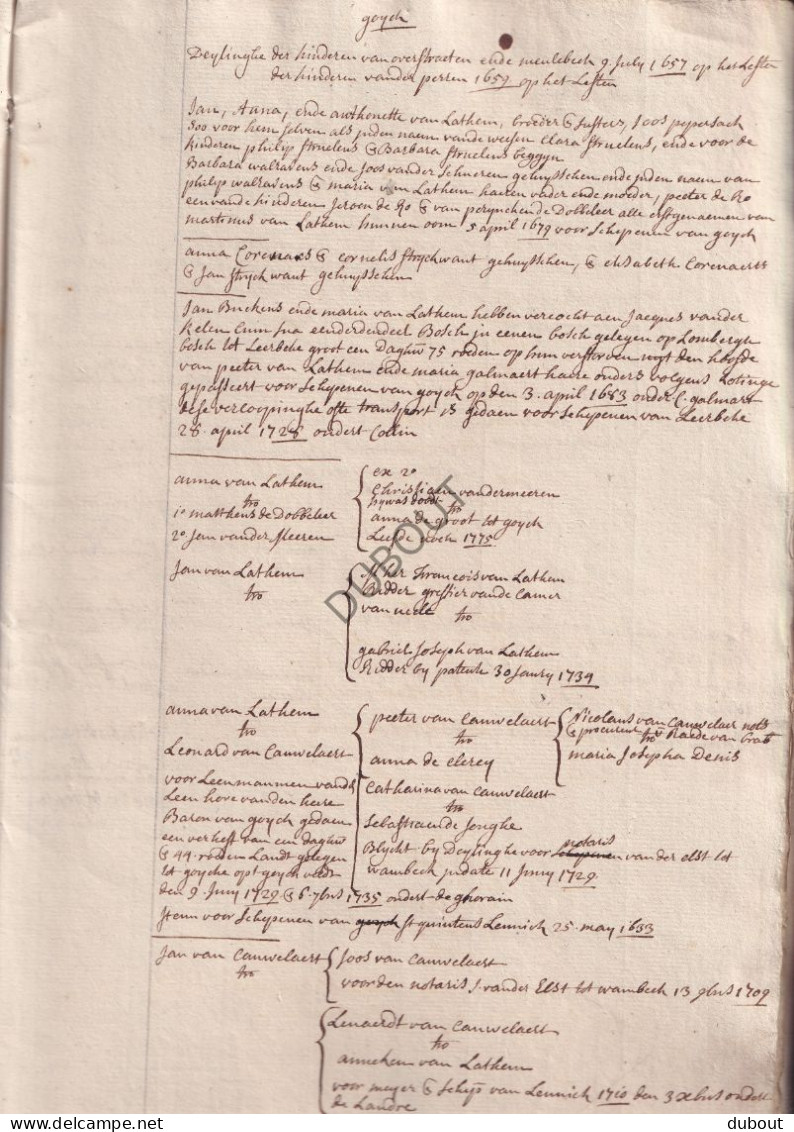 goych
Deylinghe der kinderen van overstraeten ende meulebeeck 9 July 1657 op het Lesten
der kinderen vander perren 1659 op het Lesten
Jan, Anna, ende anthonette van Lathem, broeder & susters, Joos pepersack
soo voor hem selven als in den naem vande weesen Clara struelens, ende voor de
kinderen philip struelens & Barbara struelens beggyn
Barbara walravens ende Joos vander schueren gehuysschen ende in den naem van
philip walravens & maria van Lathem haeren vader ende moeder, peeter de Ko
een vande kinderen Jeroen de Ko & van peryncken de Dobbeleer alle erfgenaemen van
martinus van Lathem hunnen oom 5 april 1679 voor schepenen van goych
anna Coremans & cornelis strychwant gehuysschen, & elisabeth Coremaers
& Jan strychwant gehuysschen
Jan Buckens ende maria van Lathem hebben vercocht aen Jacques vander
Kelen een derdendeel Bosch in eenen bosch gelegen op Lombergh
bosch tot Leerbeke groot een Daghw 75 roeden op hun verstorven uyt den hoofde
van peeter van Lathem ende maria galmaert haere ouders volgens Lotinge
gepasseert voor schepenen van goych op den 3. april 1683 onder C. galmart
dese vercoopinghe ofte transport is gedaen voor schepenen van Leerbeke
28. april 1728 ondert Collin
anna van Lathem
tro
1º mattheus de Dobbeleer
2º Jan vander Meeren
ex 2º
Christiaen vandermeeren
hy was doodt
tro
anna de groot tot goych
Leefde noch 1775
Jan van Lathem
tro
Jor her francois van Lathem
Ridder greffier vande Camer
van
tro
gabriel Joseph van Lathem
Ridder by patente 30 January 1739
anna van Lathem
tro
Leonard van Cauwelaert
voor Leenmannen vande
Leen hove vanden heere
Baron van goych gedaen
een verheff van een daghw
& 44 rodden Landt gelegen
tot goyche opt goych veldt
den 9. Juny 1729 & 6. 7bris 1735 ondert de ghorain
peeter van Cauwelaert
tro
anna de clercq
Nicolaus van Cauwelaer nots
& procureur Raede van brabt
tro
maria Josepha Denis
Catharina van Cauwelaert
tro
Sebastiaen de Jonghe
Blyckt by Deylinghe voor notaris van der elst tot
wambeek in date 11 Juny 1729
Item voor schepenen van goych St quintens Lennick 25. may 1633
Jan van Cauwelaert
tro
Joos van Cauwelaert
voor den notaris J. vander Elst tot wambeek 13 9bris 1709
Lenaerdt van Cauwelaert
tro
anneken van Lathem
voor meyer & schep van Lennick 1710 den 3 xbris ondert
de Landre
DUBOUT
dubout
delcampe.net